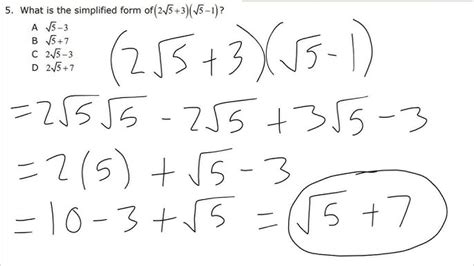 5. What is the simplified form of (2√5+3)(√5−1)?
A √5−3
B √5+7
C 2√5−3
D 2√5+7
(2√5+3)(√5−1)
=2√5√5 − 2√5 + 3√5 − 3
=2(5) + √5 − 3
=10−3+√5 = √5+7